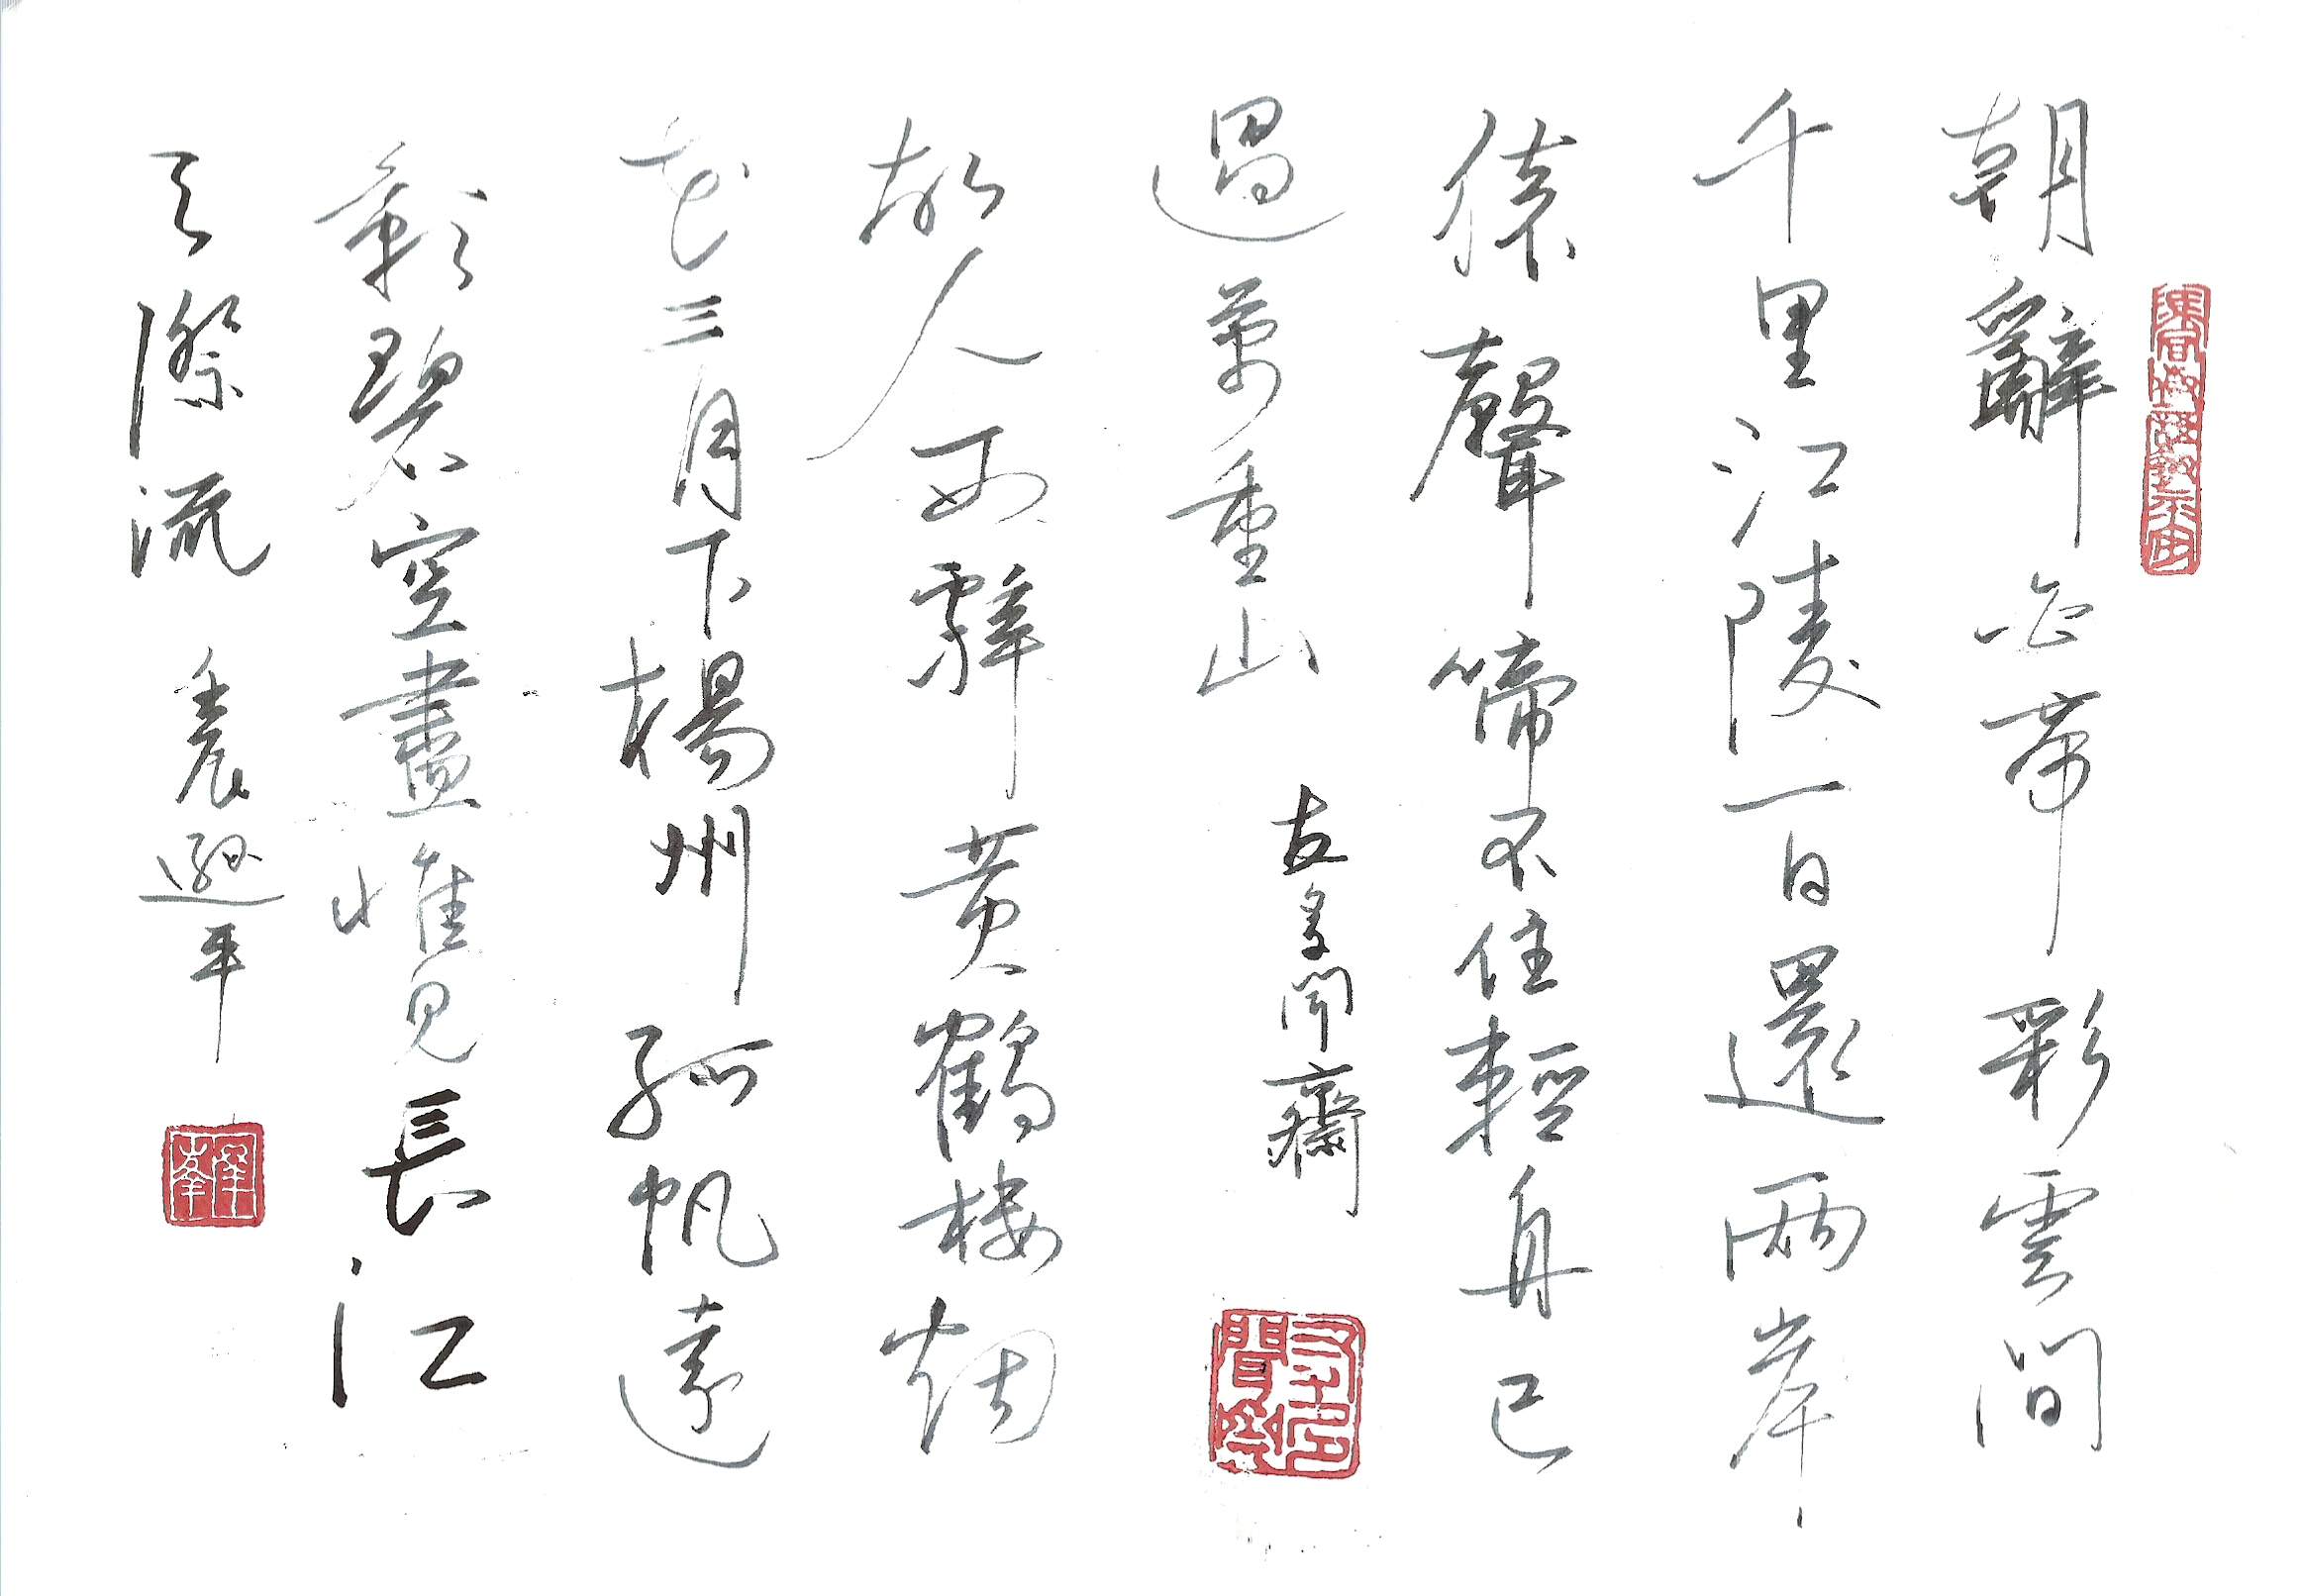 朝辭白帝彩雲間
千里江陵一日還兩岸
猿聲啼不住輕舟已
過萬重山 友多聞齋
故人西辭黃鶴樓烟
花三月下楊州孤帆遠
影碧空盡惟見長江
天際流 壬辰遜平
友多聞齋